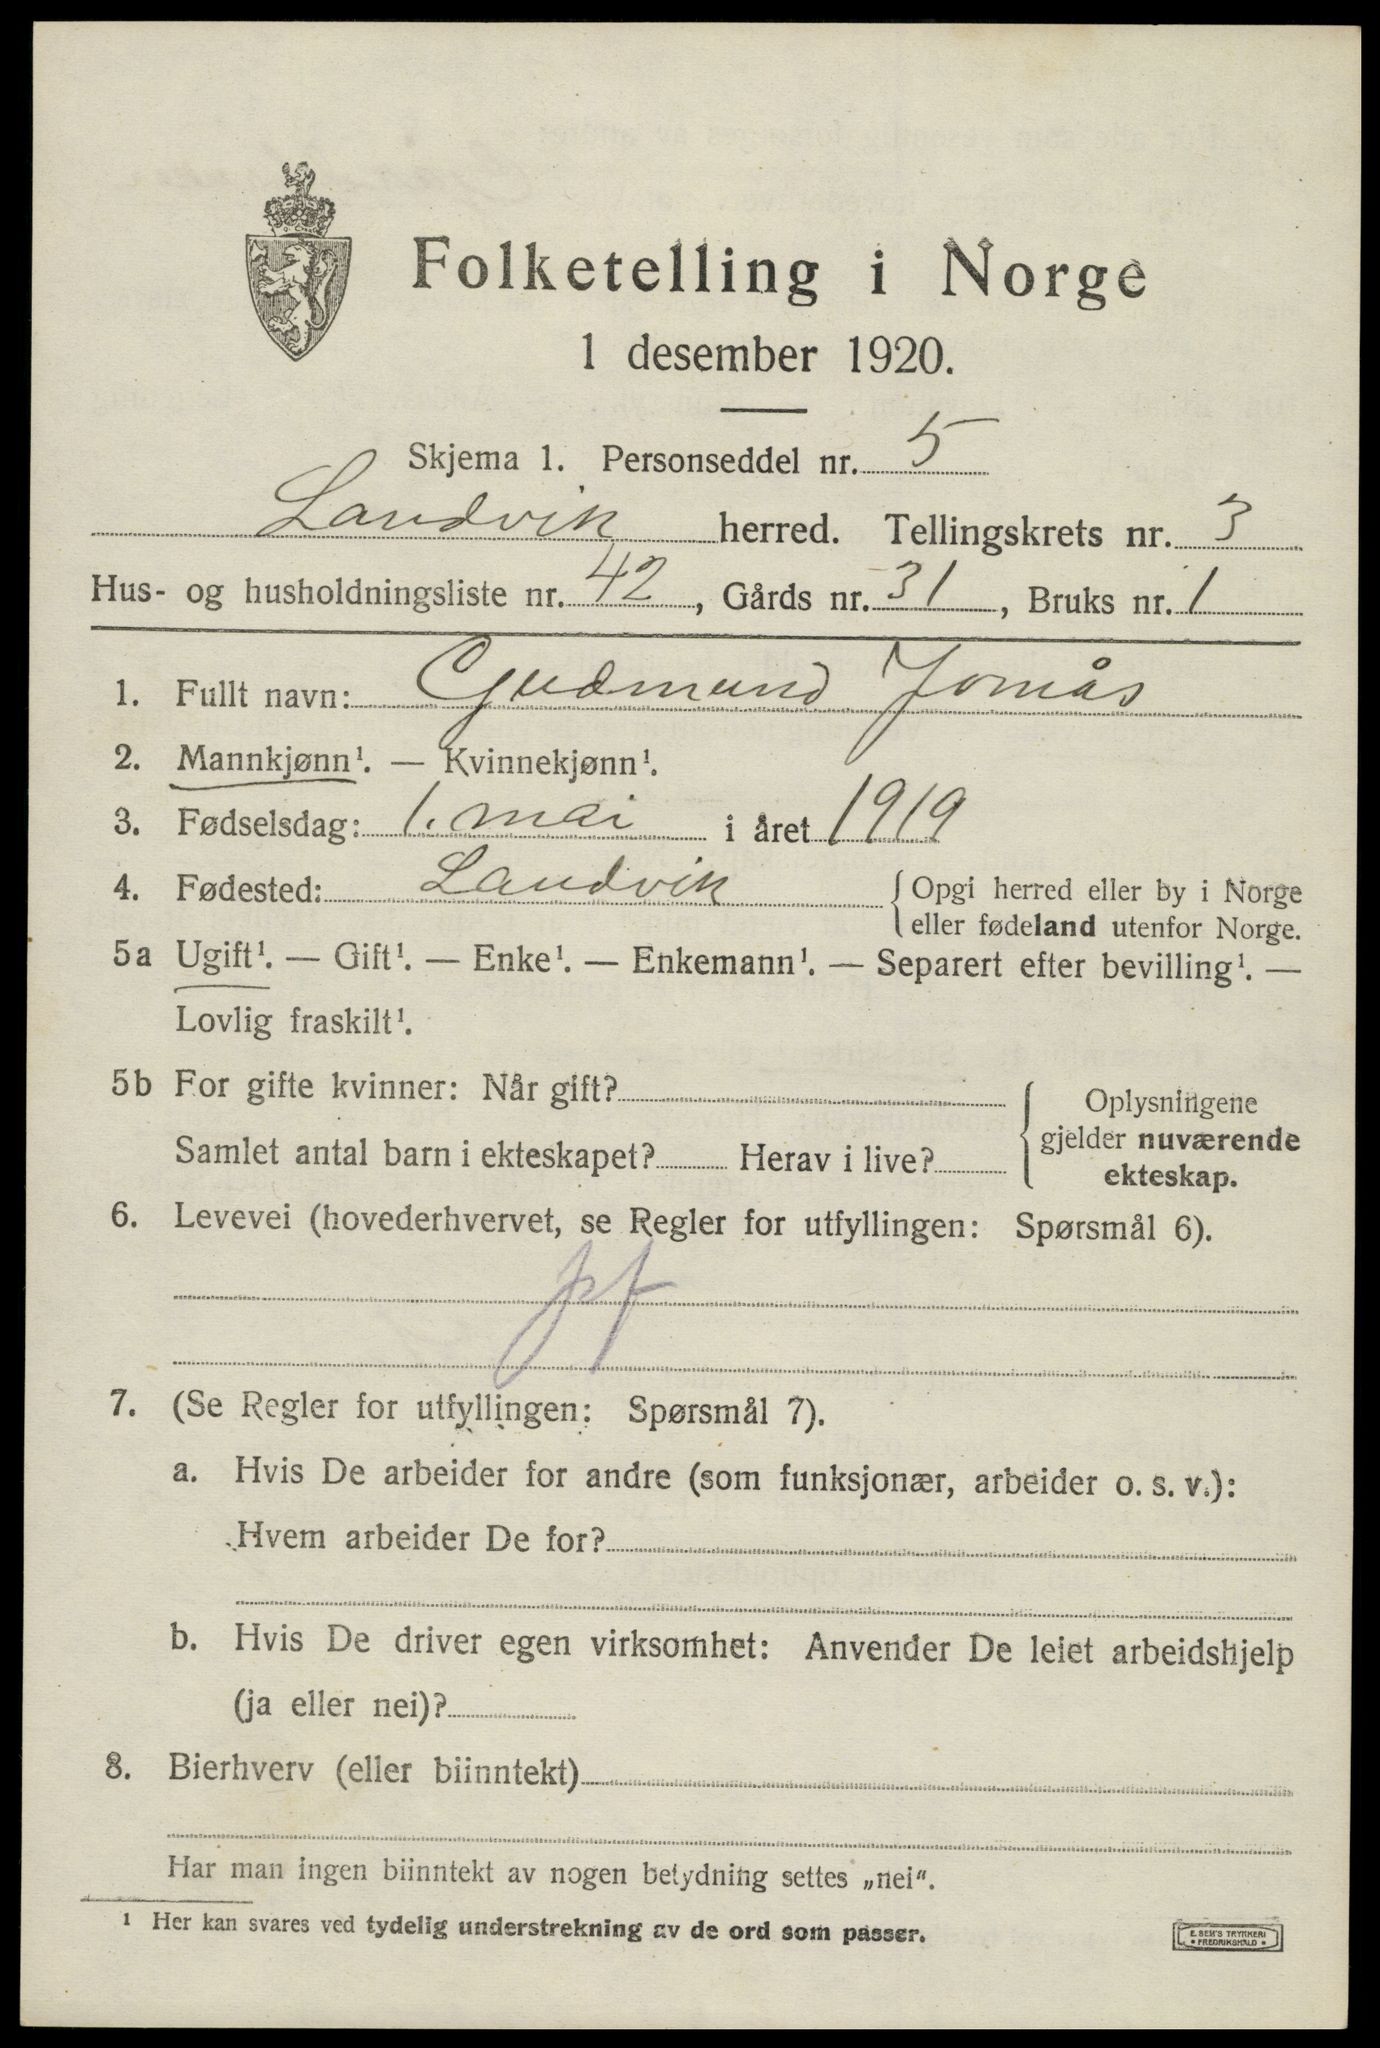 Folketelling i Norge
1 desember 1920.
Skjema 1. Personseddel nr. 5
Landvik herred. Tellingskrets nr. 3
Hus- og husholdningsliste nr. 42, Gårds nr. 31, Bruks nr. 1
1. Fullt navn: Gudmund Jomås
2. Mannkjønn¹. — Kvinnekjønn¹.
3. Fødselsdag: 1. mai i året 1919
4. Fødested: Landvik { Opgi herred eller by i Norge
eller fødeland utenfor Norge.
5a Ugift¹. — Gift¹. — Enke¹. — Enkemann¹. — Separert efter bevilling¹. —
Lovlig fraskilt¹.
5b For gifte kvinner: Når gift?
Samlet antal barn i ekteskapet? Herav i live?
{ Oplysningene
gjelder nuværende
ekteskap.
6. Levevei (hovederhvervet, se Regler for utfyllingen: Spørsmål 6).
7. (Se Regler for utfyllingen: Spørsmål 7).
a. Hvis De arbeider for andre (som funksjonær, arbeider o. s. v.):
Hvem arbeider De for?
b. Hvis De driver egen virksomhet: Anvender De leiet arbeidshjelp
(ja eller nei)?
8. Bierhverv (eller biinntekt)
Har man ingen biinntekt av nogen betydning settes „nei“.
¹ Her kan svares ved tydelig understrekning av de ord som passer.
E. SEM'S TRYKKERI
FREDRIKSHALD